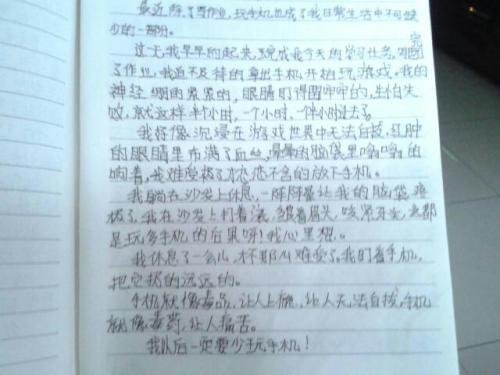 最近除了写作业,玩手机也成了我日常生活中不可缺
少的一部分。
这一天我早早的起来,完成我今天的学习任务,
了作业,我迫不及待的拿出手机开始玩游戏。我的
神经绷的紧紧的,眼睛盯得圆的,生怕失
败,就这样半个小时,一个小时,一个半小时过去了。
我好像沉浸在游戏世界中无法自拔,红肿
的眼睛里布满了血丝,的脑袋里嗡嗡的
响着,我难受极了,恋恋不舍的放下手机。
我躺在沙发上休息,一阵阵晕让我的脑袋疼
极了,我在沙发上打着滚,皱着眉头,咬紧牙关,这都
是玩多手机的后果呀!我心里想。
我休息了一会儿,不那么难受了。我盯着手机,
把它扔的远远的。
手机就像毒品,让人上瘾,让人无法自拔,手机
就像毒药,让人痛苦。
我以后一定要少玩手机!